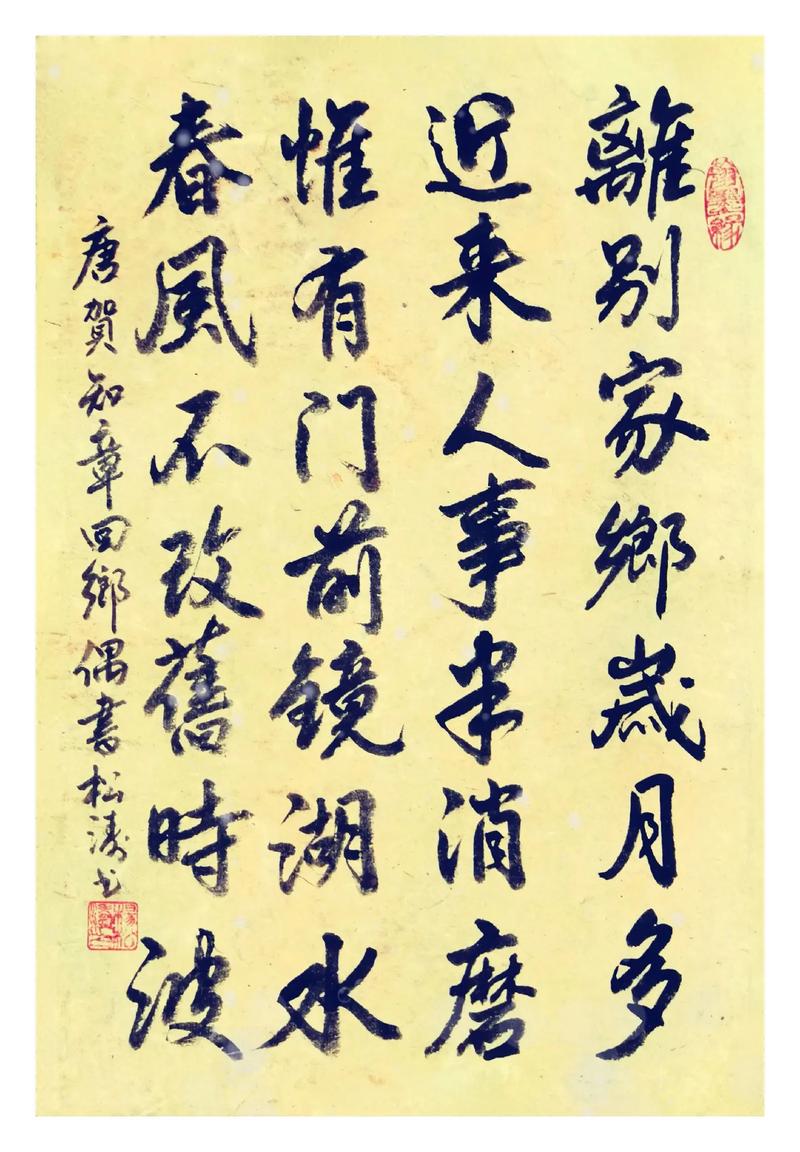 離别家鄉歲月多
近来人事半消磨
惟有门前镜湖水
春風不改舊時波
唐賀知章回鄉偶書松涛书